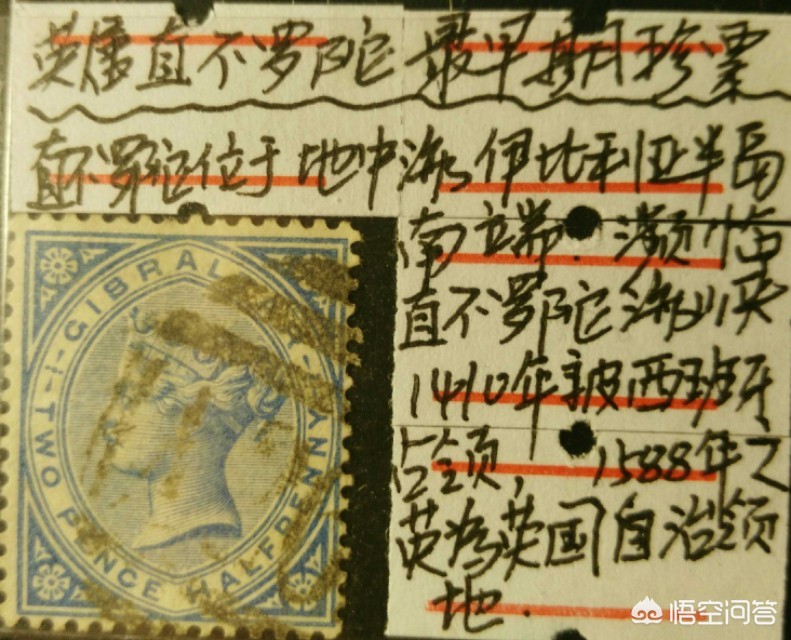 英属直不罗陀 最早期珍票
直不罗陀位于地中海伊比利亚半岛
南端.濒临
直不罗陀海峡
1410年被西班牙
占领, 1588年之
英为英国自治领
地.
TWO PENCE HALFPENNY
悟空问答